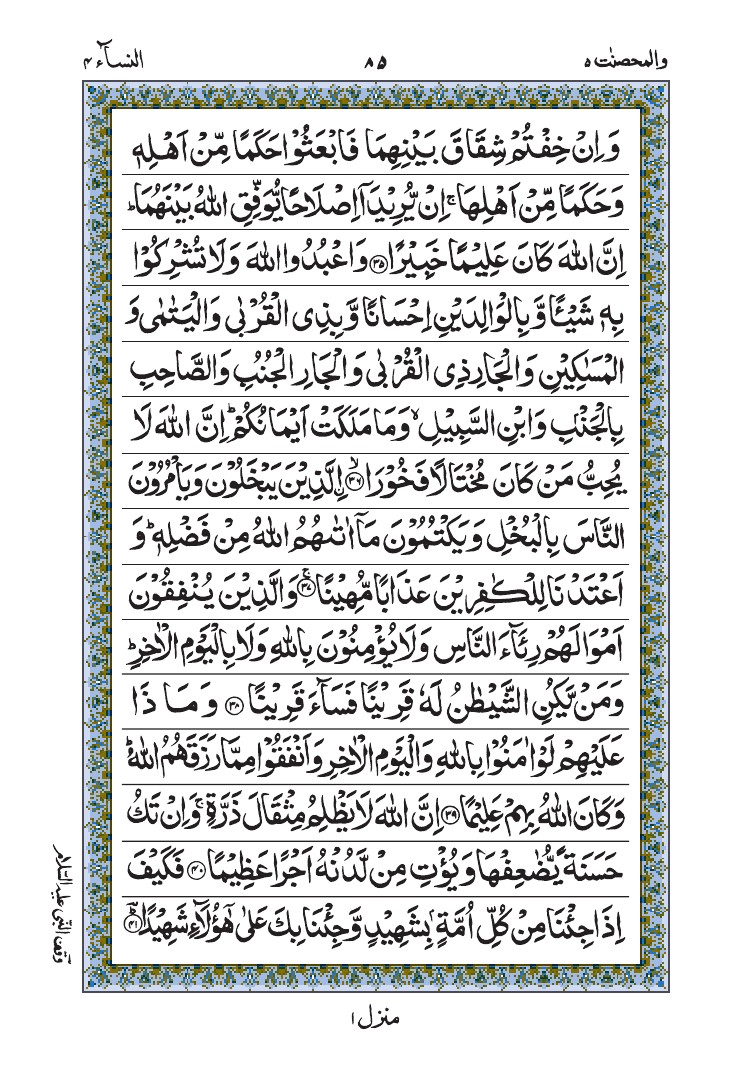 والمحصنٰت ۵
۸۵
النسآء ۴
وَاِنْ خِفْتُمْ شِقَاقَ بَيْنِهِمَا فَابْعَثُوْا حَكَمًا مِّنْ اَهْلِهٖ
وَحَكَمًا مِّنْ اَهْلِهَا ۚ اِنْ يُّرِيْدَآ اِصْلَاحًا يُّوَفِّقِ اللّٰهُ بَيْنَهُمَا ؕ
اِنَّ اللّٰهَ كَانَ عَلِيْمًا خَبِيْرًا ﴿۳۵﴾ وَاعْبُدُوا اللّٰهَ وَلَا تُشْرِكُوْا
بِهٖ شَيْـًٔا وَّبِالْوَالِدَيْنِ اِحْسَانًا وَّبِذِى الْقُرْبٰى وَالْيَتٰمٰى وَ
الْمَسٰكِيْنِ وَالْجَارِ ذِى الْقُرْبٰى وَالْجَارِ الْجُنُبِ وَالصَّاحِبِ
بِالْجَنْۢبِ وَابْنِ السَّبِيْلِ ۙ وَمَا مَلَكَتْ اَيْمَانُكُمْ ؕ اِنَّ اللّٰهَ لَا
يُحِبُّ مَنْ كَانَ مُخْتَالًا فَخُوْرًا ۙ﴿۳۶﴾ اۨلَّذِيْنَ يَبْخَلُوْنَ وَيَاْمُرُوْنَ
النَّاسَ بِالْبُخْلِ وَيَكْتُمُوْنَ مَآ اٰتٰىهُمُ اللّٰهُ مِنْ فَضْلِهٖ ؕ وَ
اَعْتَدْنَا لِلْكٰفِرِيْنَ عَذَابًا مُّهِيْنًا ۚ﴿۳۷﴾ وَالَّذِيْنَ يُنْفِقُوْنَ
اَمْوَالَهُمْ رِئَآءَ النَّاسِ وَلَا يُؤْمِنُوْنَ بِاللّٰهِ وَلَا بِالْيَوْمِ الْاٰخِرِ ؕ
وَمَنْ يَّكُنِ الشَّيْطٰنُ لَهٗ قَرِيْنًا فَسَآءَ قَرِيْنًا ﴿۳۸﴾ وَمَا ذَا
عَلَيْهِمْ لَوْ اٰمَنُوْا بِاللّٰهِ وَالْيَوْمِ الْاٰخِرِ وَاَنْفَقُوْا مِمَّا رَزَقَهُمُ اللّٰهُ ؕ
وَكَانَ اللّٰهُ بِهِمْ عَلِيْمًا ﴿۳۹﴾ اِنَّ اللّٰهَ لَا يَظْلِمُ مِثْقَالَ ذَرَّةٍ ۚ وَاِنْ تَكُ
حَسَنَةً يُّضٰعِفْهَا وَيُؤْتِ مِنْ لَّدُنْهُ اَجْرًا عَظِيْمًا ﴿۴۰﴾ فَكَيْفَ
اِذَا جِئْنَا مِنْ كُلِّ اُمَّةٍۢ بِشَهِيْدٍ وَّجِئْنَا بِكَ عَلٰى هٰٓؤُلَآءِ شَهِيْدًا ؕ﴿۴۱﴾
وقف النّبی علیہ السّلام
منزل ۱